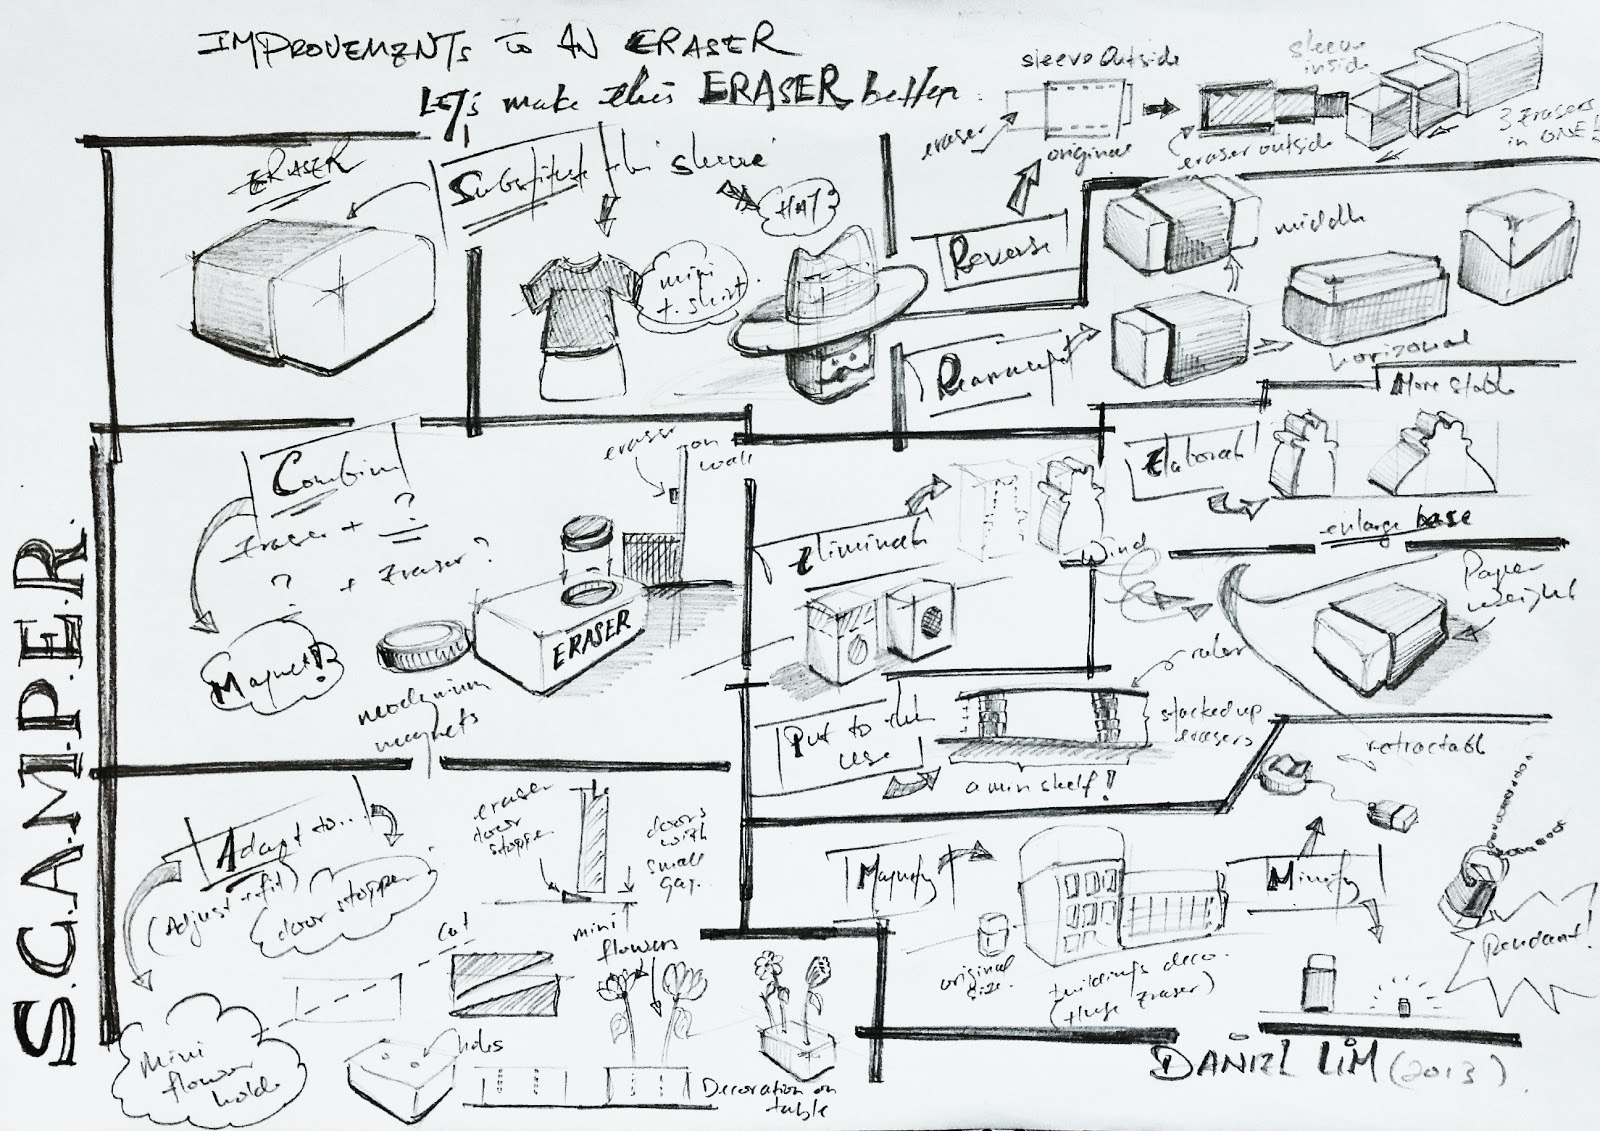 IMPROVEMENTS TO AN ERASER
Let's make this ERASER better.
S.C.A.M.P.E.R.
ERASER
Substitute the 'sleeve'
mini
t.shirt.
HAT
Reverse
sleeve outside
eraser
original
eraser outside
sleeve
inside
3 Erasers
in ONE!
Rearrange
middle
horizontal
Combine
Eraser + ?
? + Eraser?
Magnet!
neodymium
magnets
ERASER
eraser
on
wall
Eliminate
Elaborate
More stable
enlarge base
Wind
Paper
weight
Put to other
use
ruler
stacked up
erasers
a mini shelf!
Adapt to...
(Adjust - fit)
door stopper
eraser
door
stopper
doors
with
small
gap.
cut
mini
flowers
mini
flower
holder
holes
Decoration on
table
Magnify
original
size.
buildings deco.
(Huge Eraser)
Minify
retractable
Pendant!
DANIEL LIM (2013).